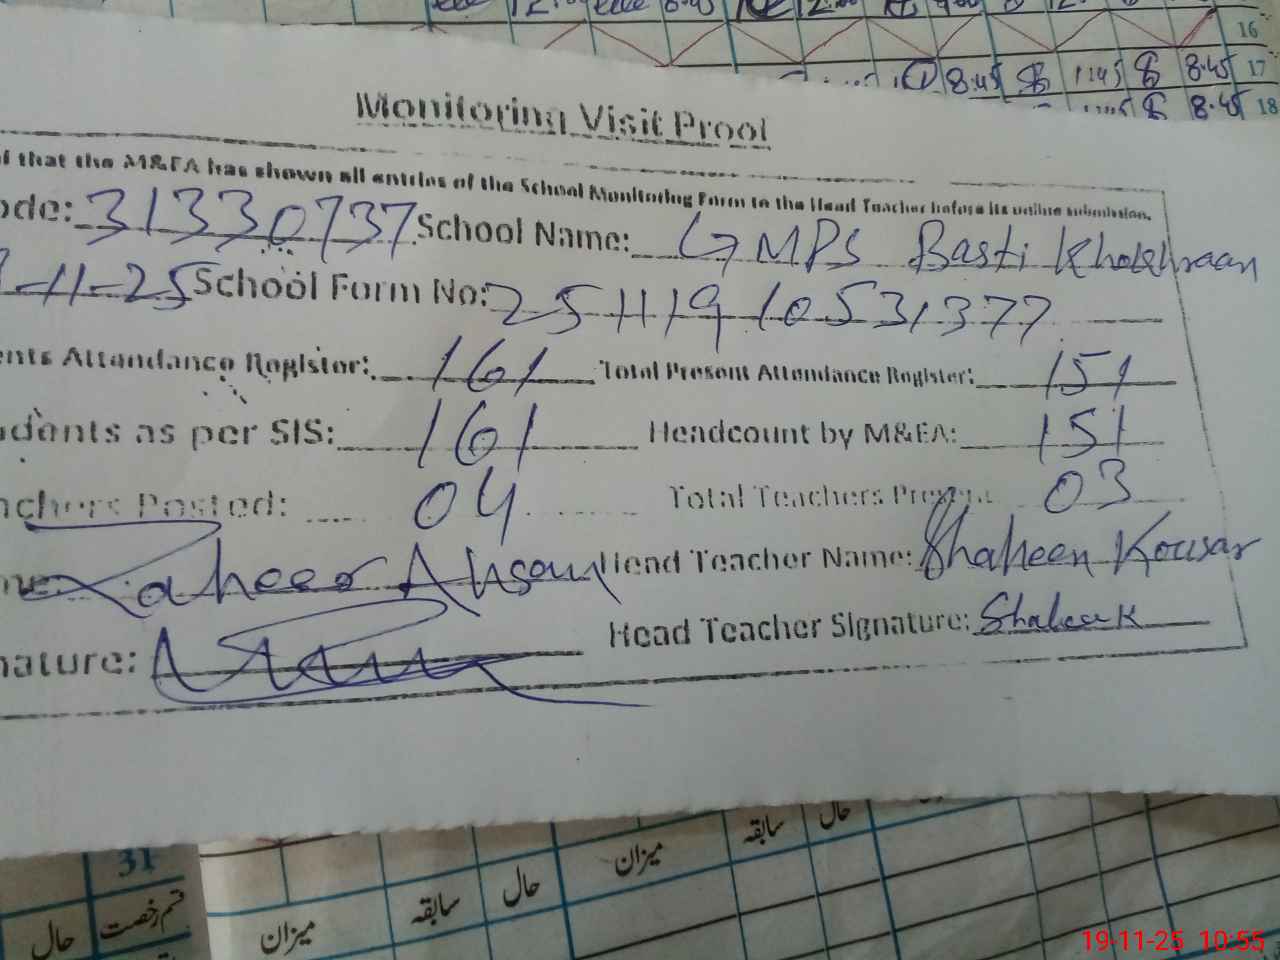 16
8.45 1145 8.45 17
8.45 18
Monitoring Visit Proof
that the M&EA has shown all entries of the School Monitoring Form to the Head Teacher before its online submission.
ode: 31330737 School Name: GMPS Basti Khokhraan
-11-25 School Form No: 25111910531377
nts Attendance Register: 161 Total Present Attendance Register: 151
udents as per SIS: 161 Headcount by M&EA: 151
achers Posted: 04 Total Teachers Present 03
me: Zaheer Ahsan Head Teacher Name: Shaheen Kousar
nature: Head Teacher Signature: Shaheen K
31
حال قسم رخصت میزان سابقہ حال میزان سابقہ حال
19-11-25 10:55